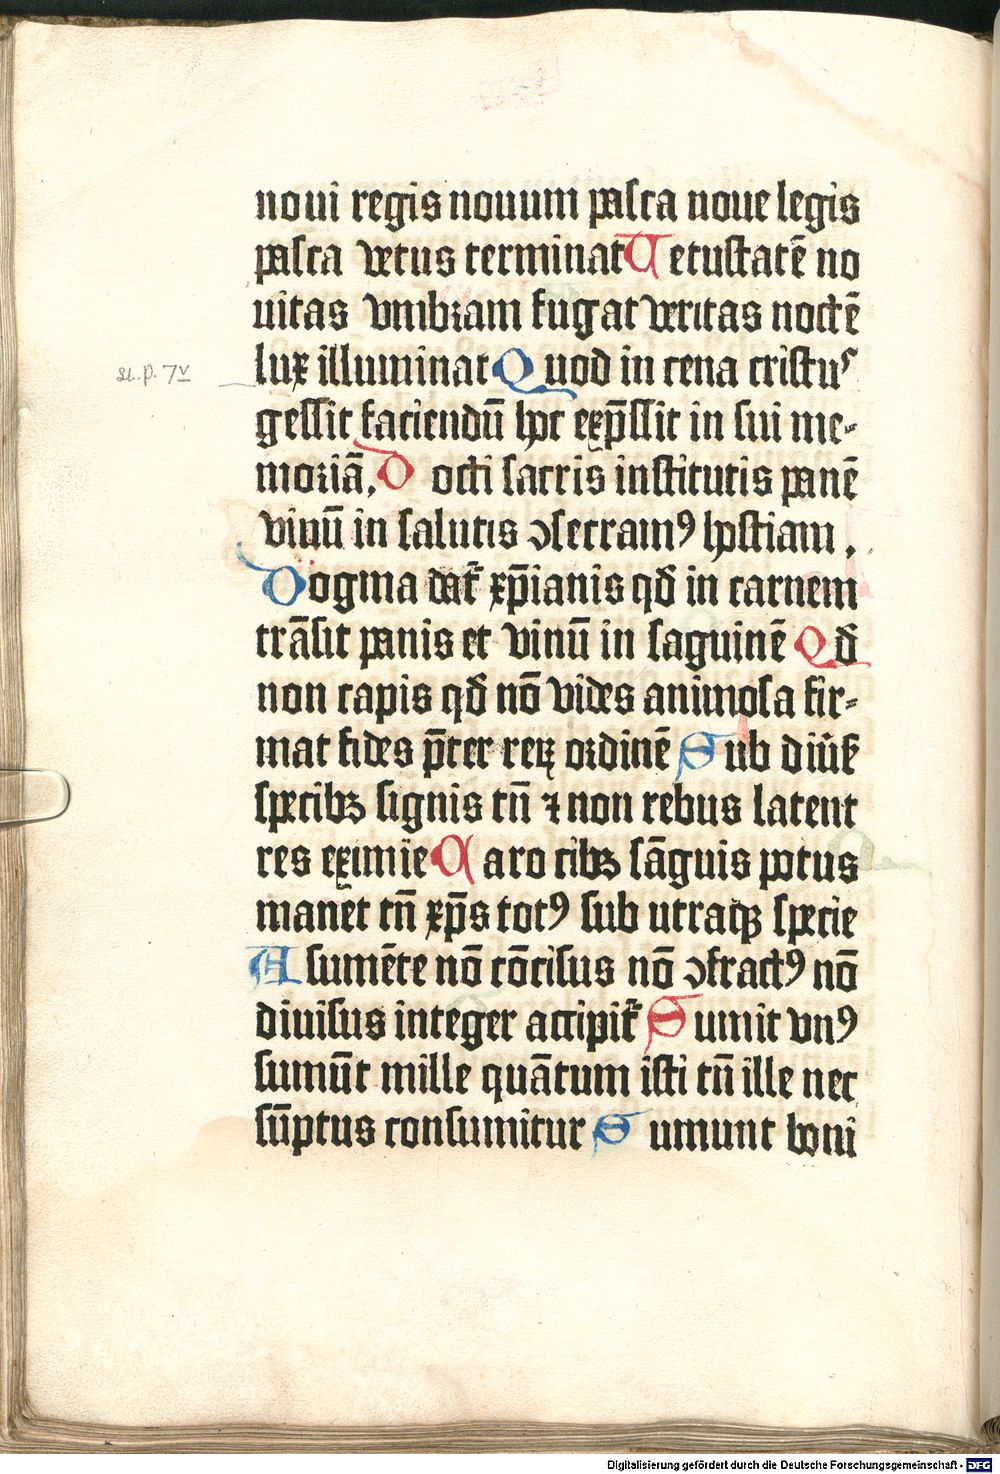 noui regis nouum pasca noue legis
pasca vetus terminat Uetustatē no
uitas vmbram fugat veritas noctē
lux illuminat Quod in cena cristus
st. p. 7v
gessit faciendū hoc exp̄ssit in sui me-
moriā. Docti sacris institutis panē
vinū in salutis ↄsecramꝰ hostiam.
Dogma dat᷑ xp̄ianis qd̄ in carnem
trāsit panis et vinū in saguinē Qd̄
non capis qd̄ nō vides animosa fir-
mat fides p̄ter reꝝ ordinē Sub diūs᷑
specibꝫ signis tn̄ ⁊ non rebus latent
res eximie Caro cibꝫ sāguis potus
manet tn̄ xp̄s totꝰ sub utraqꝫ specie
A sumēte nō cōcisus nō ↄfractꝰ nō
diuisus integer accipit᷑ Sumit vnꝰ
sumūt mille quātum isti tn̄ ille nec
sūptus consumitur Sumunt boni
Digitalisierung gefördert durch die Deutsche Forschungsgemeinschaft - DFG